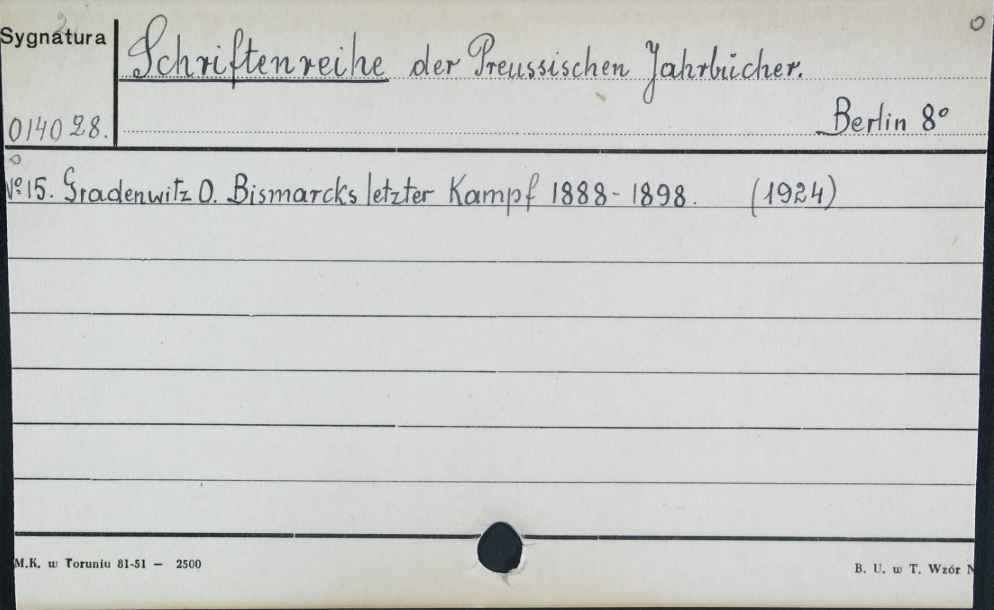 Sygnatura
Schriftenreihe der Preussischen Jahrbücher.
014028.
Berlin 8º
Nº 15. Gradenwitz O. Bismarcks letzter Kampf 1888-1898. (1924)
M.K. w Toruniu 81-51 — 2500
B. U. w T. Wzór N